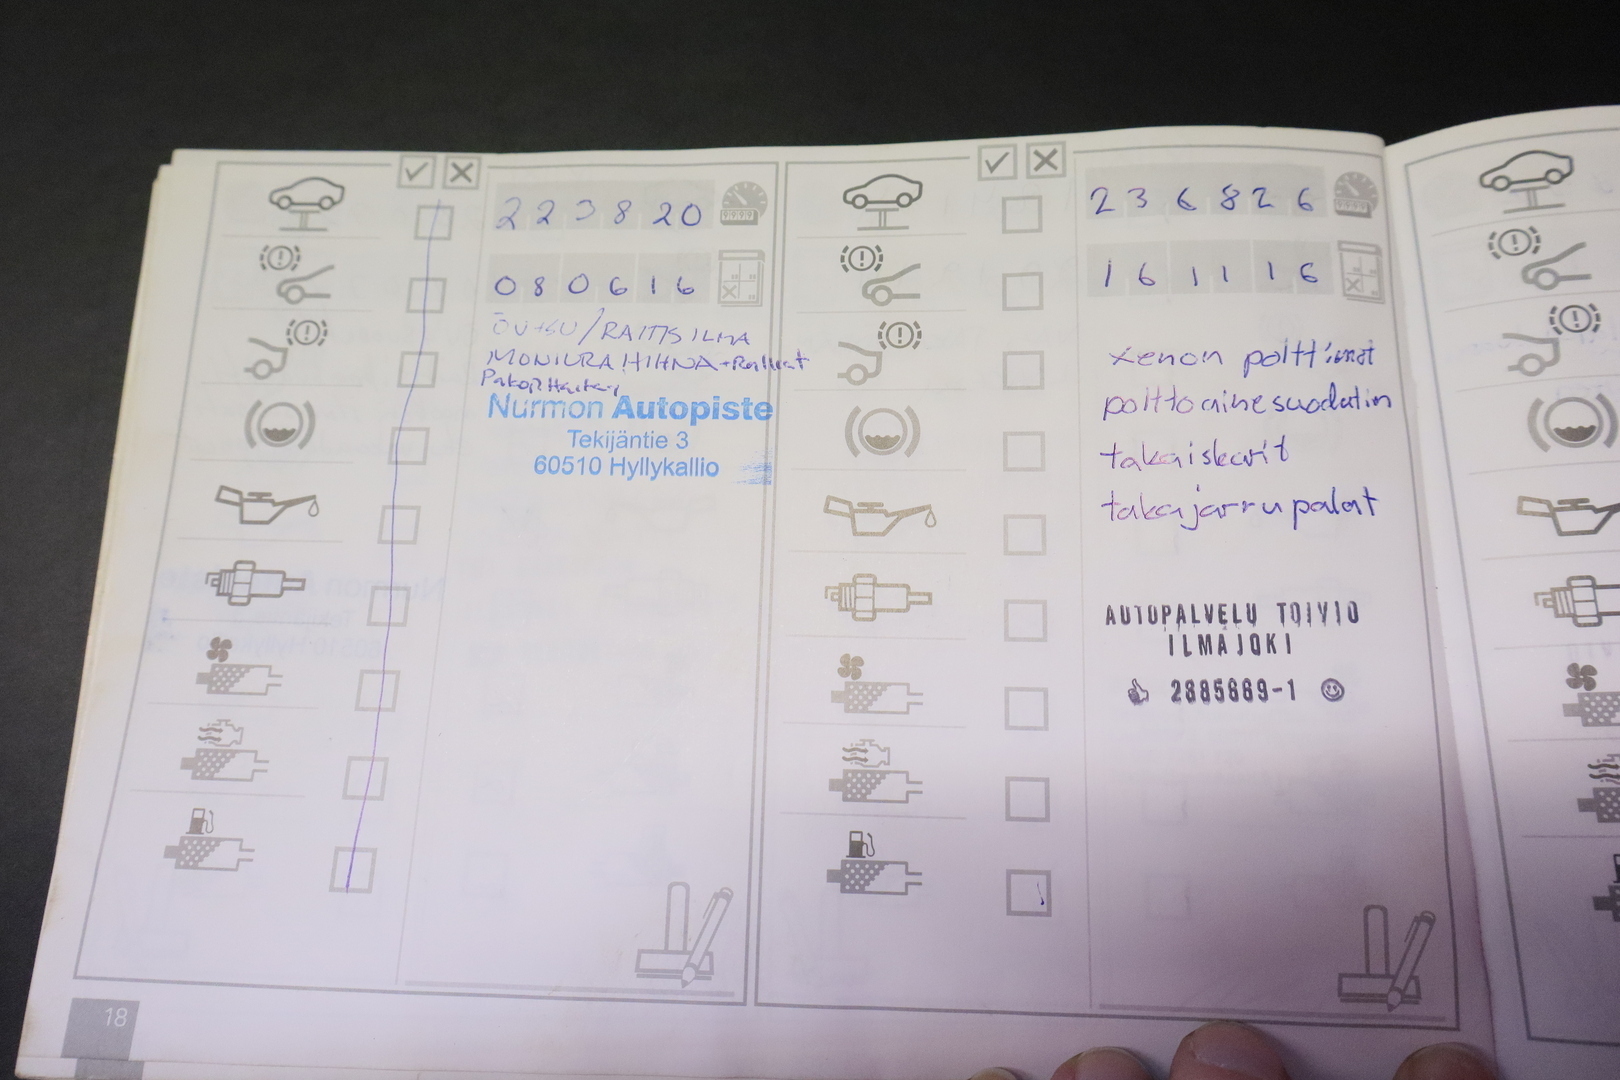 223820
080616
ÖLJYSU/RAITISILMA
MONIURA HIHNA+Rullat
Nurmon Autopiste
Tekijäntie 3
60510 Hyllykallio
236826
161116
xenon polttimot
polttoainesuodatin
takaiskarit
takajarrupalat
AUTOPALVELU TOIVIO
ILMAJOKI
2885869-1
18